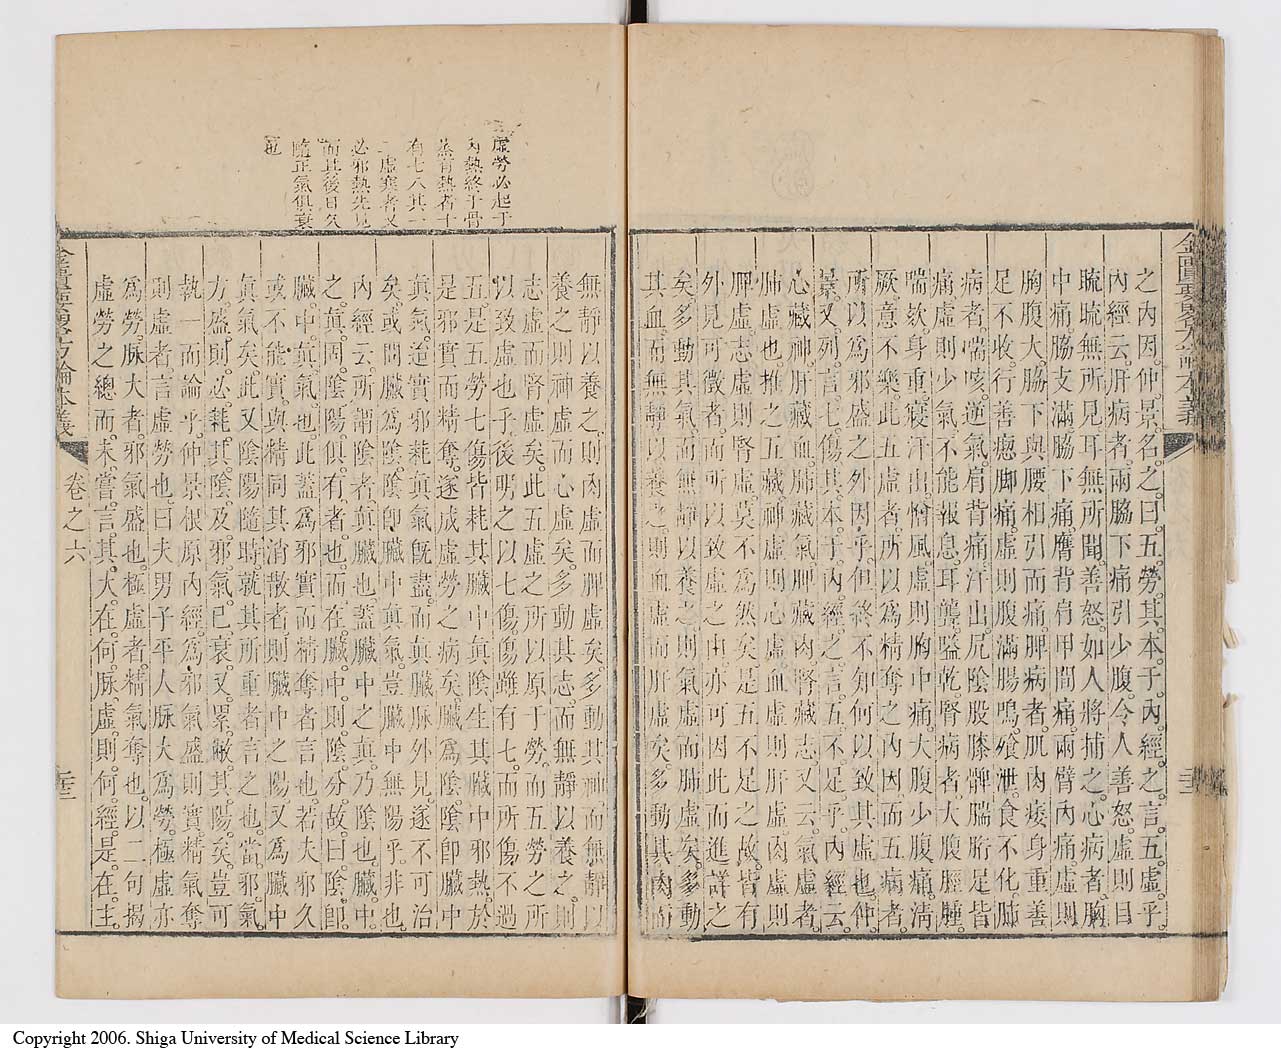 金匱要畧方論本義
之內因。仲景名之曰五勞。其本于內經之言五虛乎。
內經云。肝病者。兩脇下痛引少腹。令人善怒。虛則目
䀮䀮無所見。耳無所聞。善怒。如人將捕之。心病者。胸
中痛。脇支滿。脇下痛。膺背肩甲間痛。兩臂內痛。虛則
胸腹大。脇下與腰相引而痛。脾病者。肌肉痿。身重。善
足不收。行善瘛。脚痛。虛則腹滿腸鳴。飧泄。食不化。肺
病者。喘咳。逆氣。肩背痛。汗出。尻陰股膝髀腨胻足皆
痛。虛則少氣。不能報息。耳聾嗌乾。腎病者。大腹脛腫。
喘欬身重。寢汗出。憎風。虛則胸中痛。大腹少腹痛。淸
厥。意不樂。此五虛者。所以爲精奪之內因。而五病者。
所以爲邪盛之外因乎。但終不知何以致其虛也。仲
景又列言七傷。其本于內經之言五不足乎。內經云。
心藏神。肝藏血。肺藏氣。脾藏肉。腎藏志。又云。氣虛者
肺虛也。推之五藏。神虛則心虛。血虛則肝虛。肉虛則
脾虛。志虛則腎虛。莫不爲然矣。是五不足之故。皆有
外見可徵者。而所以致虛之由。亦可因此而進詳之
矣。多動其氣而無靜以養之。則氣虛而肺虛矣。多動
其血而無靜以養之。則血虛而肝虛矣。多動其肉而
無靜以養之。則肉虛而脾虛矣。多動其神而無靜以
養之。則神虛而心虛矣。多動其志。而無靜以養之。則
志虛而腎虛矣。此五虛之所以原于勞。而五勞之所
以致虛也乎。後明之以七傷。傷雖有七。而所傷不過
五。是五勞七傷皆耗其臟中眞陰。生其臟中邪熱。於
是邪實而精奪。遂成虛勞之病矣。臟爲陰。陰卽臟中
眞氣。迨實邪耗眞氣旣盡。而眞臟脉外見。遂不可治
矣。或問臟爲陰。陰卽臟中眞氣。豈臟中無陽乎。非也。
內經云。所謂陰者。眞臟也。蓋臟中之眞。乃陰也。臟中
之眞。固陰陽俱有者也。而在臟中。則陰分。故曰陰。卽
臟中眞氣也。此蓋爲邪實而精奪者言也。若夫邪久
或不能實。與精同其消散者。則臟中之陽。又爲臟中
眞氣矣。此又陰陽隨時就其所重者言之也。當邪氣
方盛則必耗其陰。及邪氣已衰。又累敝其陽矣。豈可
執一而論乎。仲景根原內經。爲邪氣盛則實。精氣奪
則虛者。言虛勞也。曰夫男子平人脉大爲勞。極虛亦
爲勞。脉大者。邪氣盛也。極虛者。精氣奪也。以二句揭
虛勞之總。而未嘗言其大在何脉。虛則何經。是在主
虛勞必起于
內熱終于骨
蒸有熱者十
有七八其一
二虛寒者又
必邪熱先見
而其後日久
隨正氣俱衰
也
金匱要畧方論本義
卷之六